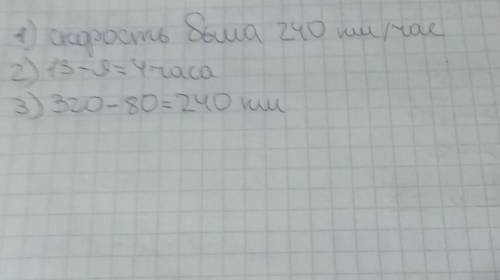 1) скорость была 240 км/час
2) 13-9=4 часа
3) 320-80=240 км